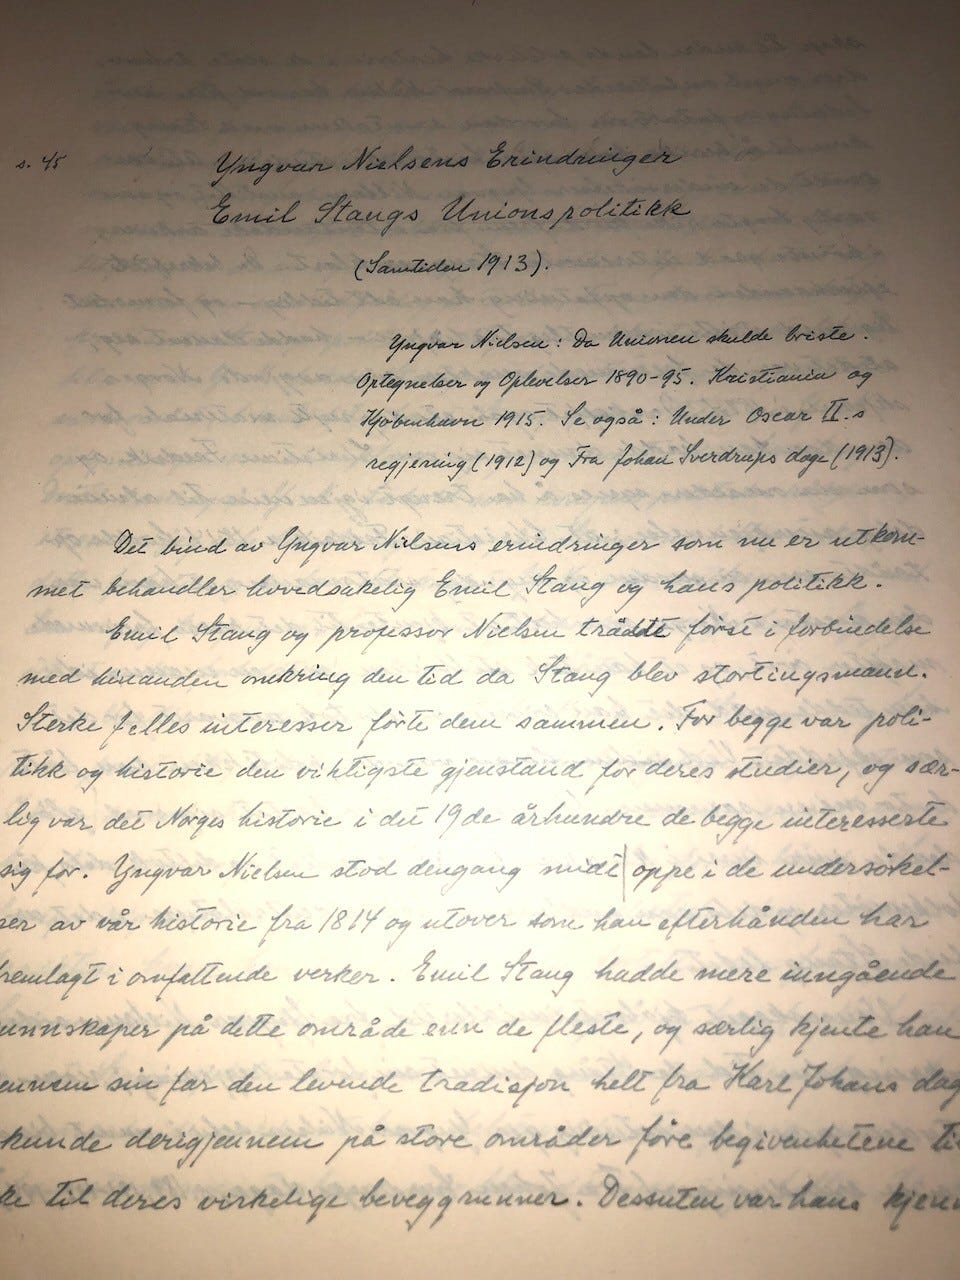 s. 45
Yngvar Nielsens Erindringer
Emil Stangs Unionspolitikk
(Samtiden 1913).
Yngvar Nielsen: Da Unionen skulde briste.
Optegnelser og Oplevelser 1890-95. Kristiania og
Kjöbenhavn 1915. Se også: Under Oscar II.s
regjering (1912) og Fra Johan Sverdrups dage (1913).
Det bind av Yngvar Nielsens erindringer som nu er utkom-
met behandler hovedsakelig Emil Stang og hans politikk.
Emil Stang og professor Nielsen trådte först i forbindelse
med hinanden omkring den tid da Stang blev stortingsmann.
Sterke felles interesser förte dem sammen. For begge var poli-
tikk og historie den viktigste gjenstand for deres studier, og sær-
lig var det Norges historie i det 19de århundre de begge interesserte
sig for. Yngvar Nielsen stod dengang midt oppe i de undersökel-
ser av vår historie fra 1814 og utover som han efterhånden har
fremlagt i omfattende verker. Emil Stang hadde mere inngående
unnskaper på dette område enn de fleste, og særlig kjente han
ennem sin far den levende tradisjon helt fra Karl Johans dag
kunde derigjennem på store områder före begivenhetene til
ke til deres virkelige beveggrunner. Dessuten var hans kjenn